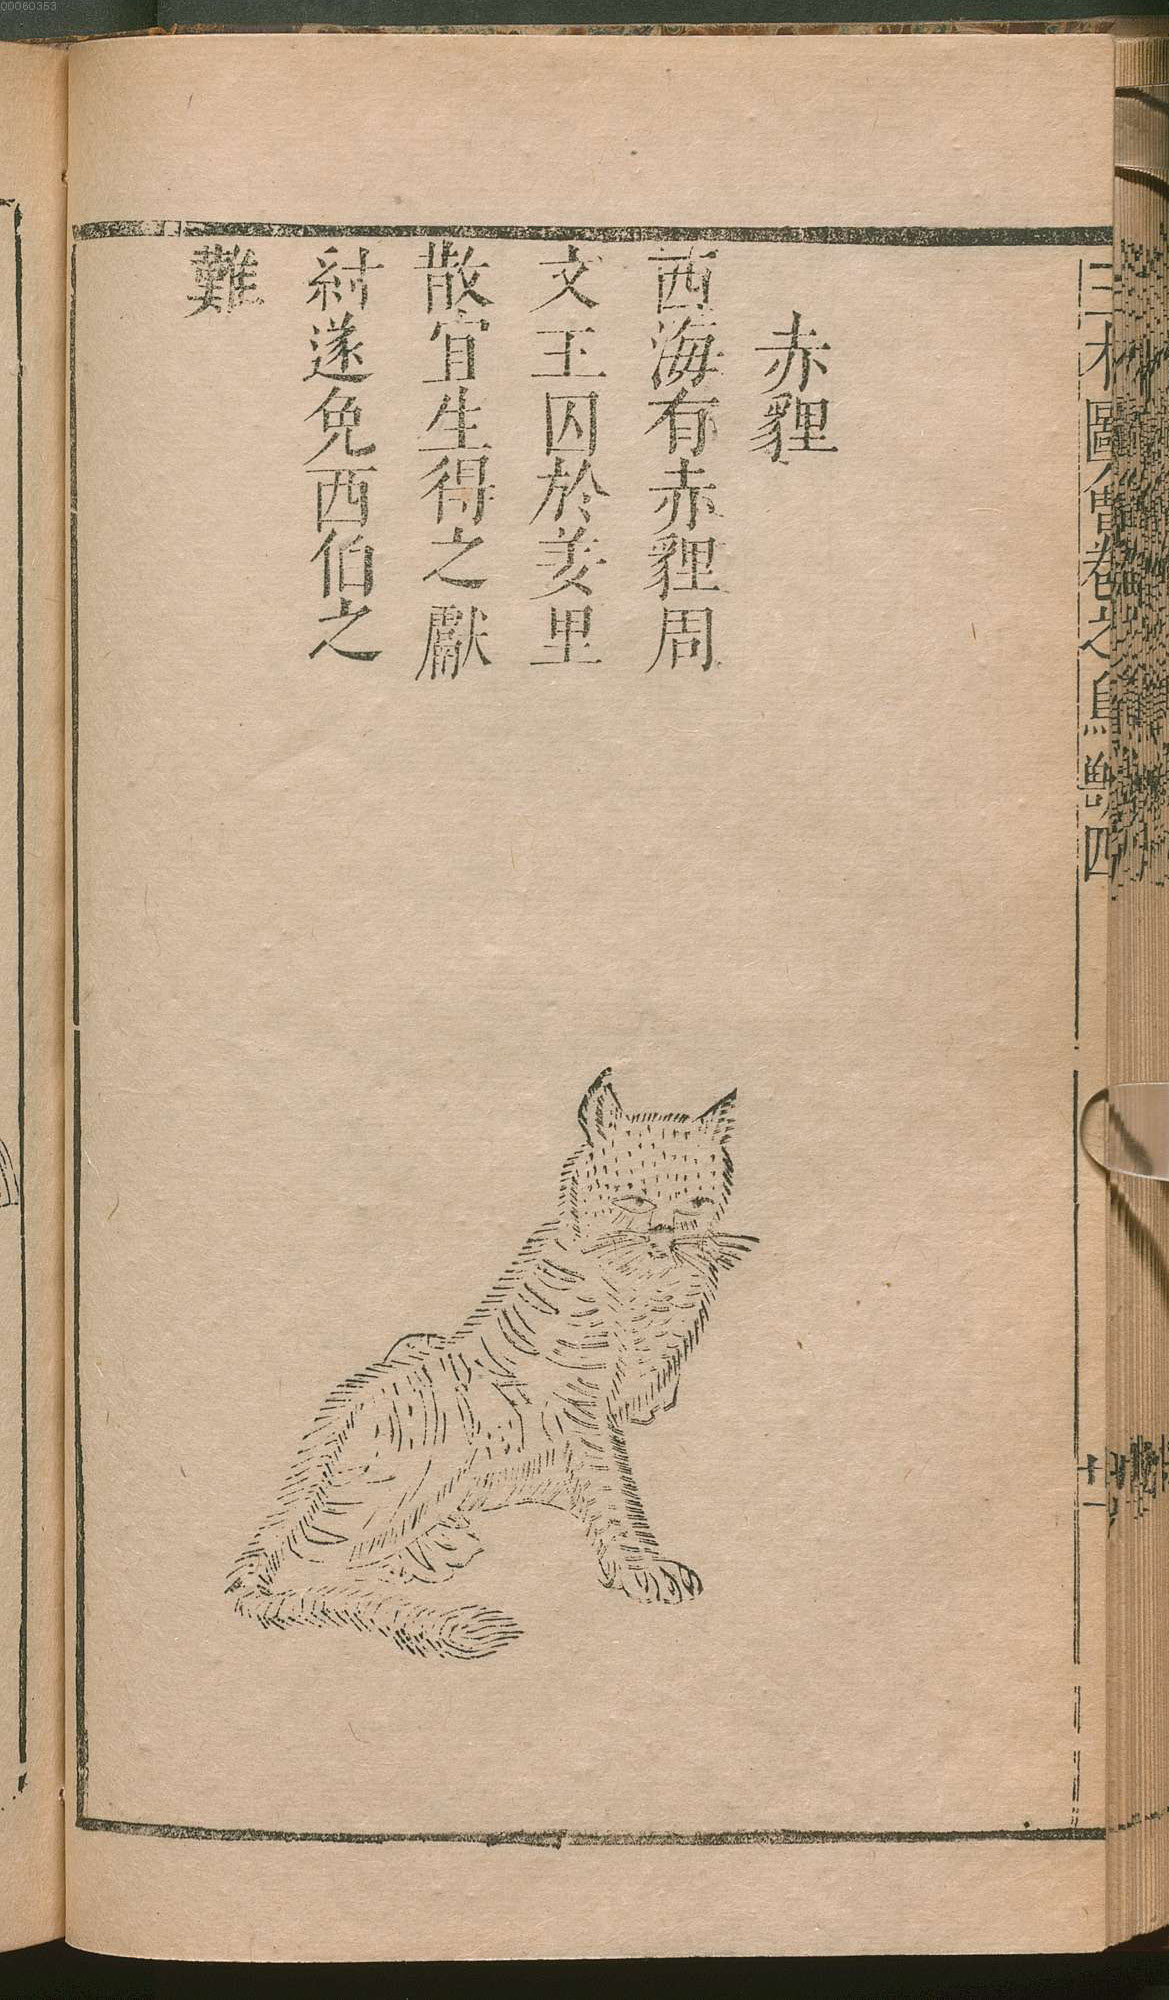 赤貍
西海有赤貍周
文王囚於羑里
散宜生得之獻
紂遂免西伯之
難
三才圖會卷之鳥獸四
00060353